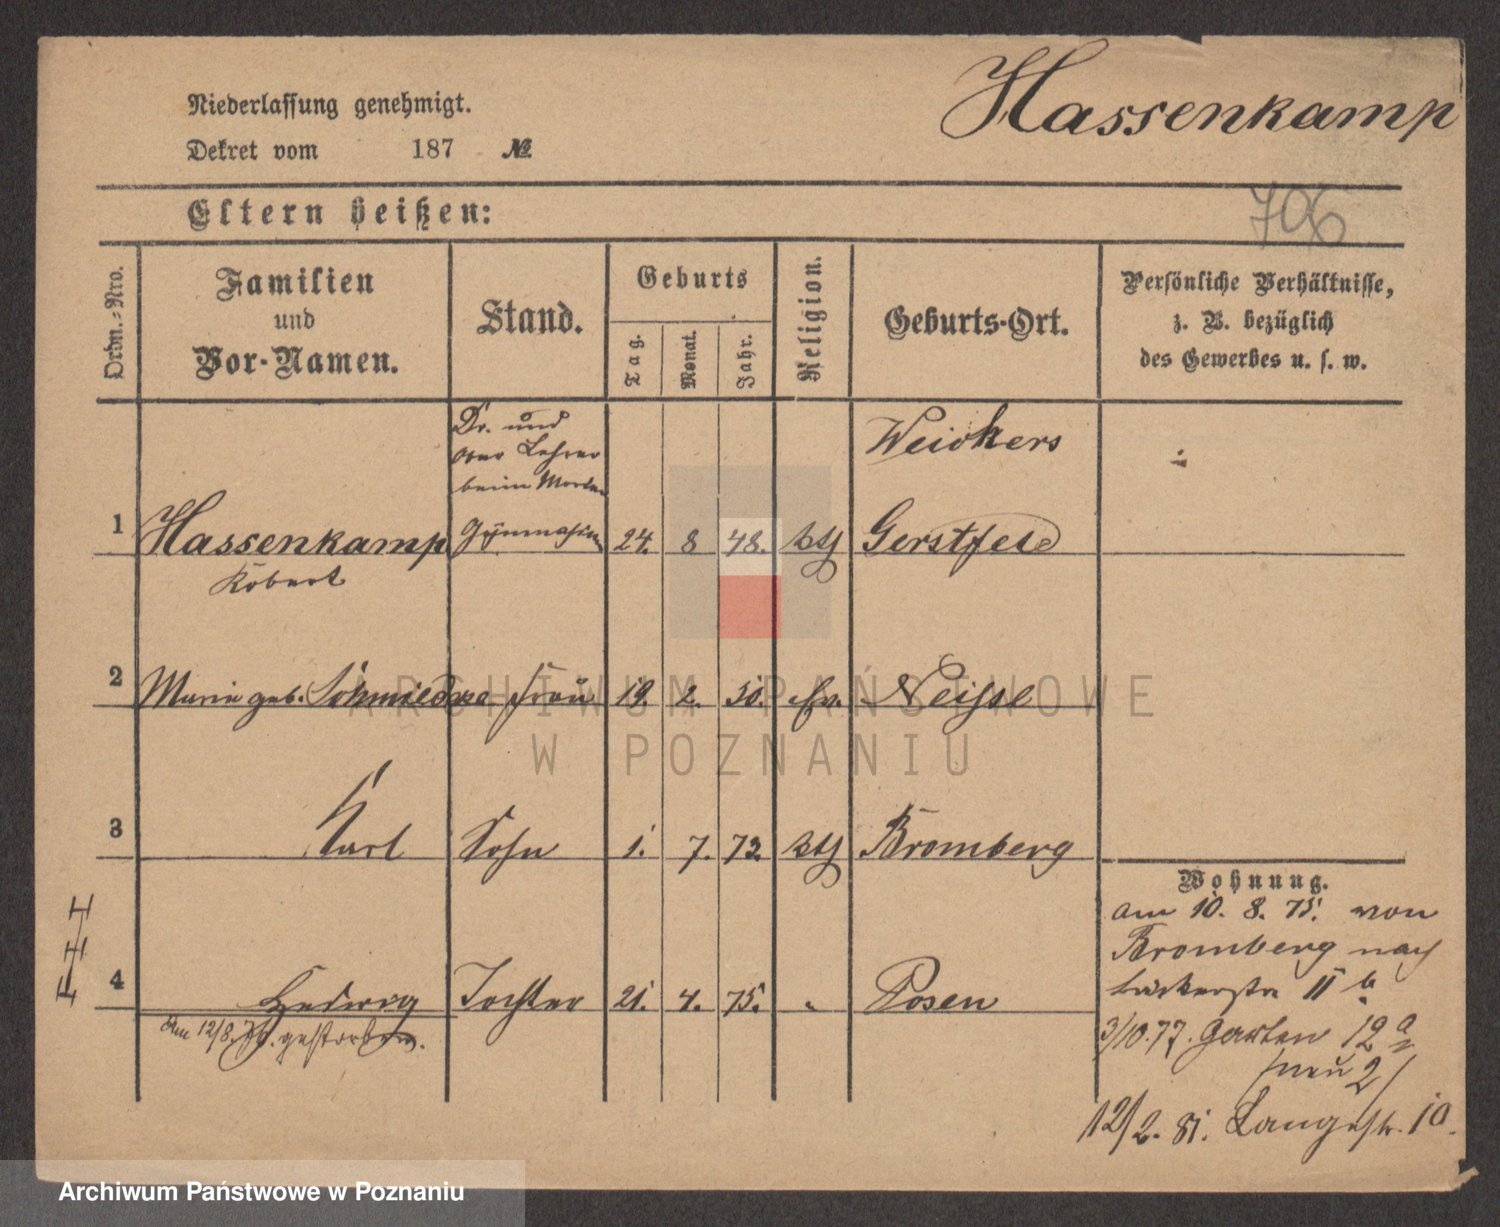 Hassenkamp
Niederlassung genehmigt.
Dekret vom 187 №
796
Eltern heißen:
Ordn.-Nro.
Familien
und
Vor-Namen.
Stand.
Geburts
Tag.
Monat.
Jahr.
Religion.
Geburts-Ort.
Persönliche Verhältnisse,
z. B. bezüglich
des Gewerbes u. s. w.
Dr. und
Ober Lehrer
beim Marien
Gymnasium
1 Hassenkamp 24. 8 48. kth Weickers Gerstfeld
Robert
2 Marie geb. Schmiedne Frau 19. 2. 50. ev. Neisse
3 Karl Sohn 1. 7. 73. kth Bromberg
4 Hedwig Tochter 21. 4. 75. " Posen
Am 12/8. 76. gestorben.
Wohnung.
am 10. 8. 75. von
Bromberg nach
Bäckerstr 11 b
3/10.77. Garten 12 a
/neu 2/
12/2. 81. Langestr. 10.
ARCHIWUM PAŃSTWOWE
W POZNANIU
Archiwum Państwowe w Poznaniu